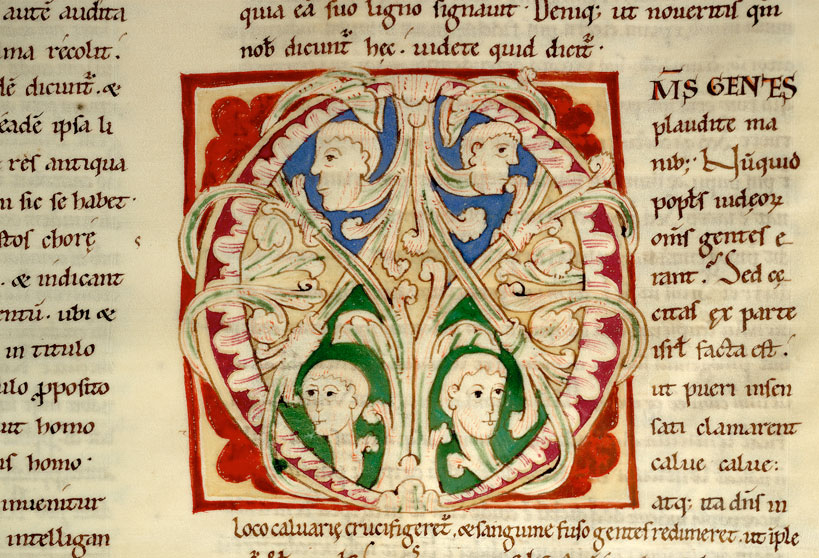 autē audita
ma recolit.
dē dicunt̄. &
eadē ipsa li
rēs antiqua
n sic se habet.
stos chorę
. & indicant
entū. ubi &
in titulo
ulo ꝓposito
ut homo
us homo.
inuenitur
intelligan
quia eā suo ligno signauit. Deniq; ut noueritis qm̄
nob̄ dicunt̄ hęc. uidete quid dicit̄.
OM̄S GENTES
plaudite ma
nib; Nūquid
popl̄s iudęoꝝ
om̄s gentes e
rant. Sed cę
citas ex parte
isrl̄ facta est.
ut pueri insen
sati clamarent
calue calue:
atq; ita dn̄s in
loco caluarię crucifigeret̄, & sanguine fuso gentes redimeret. ut iple